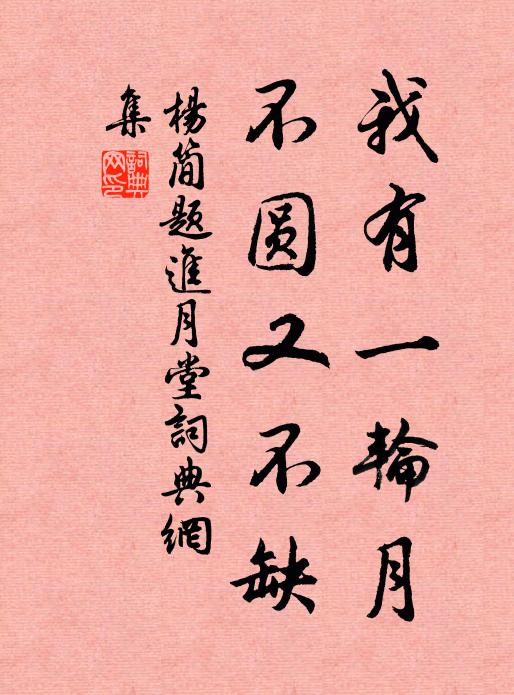 我有一輪月
不圆又不缺
楊简題進月堂詞典網
集
詞典
网印